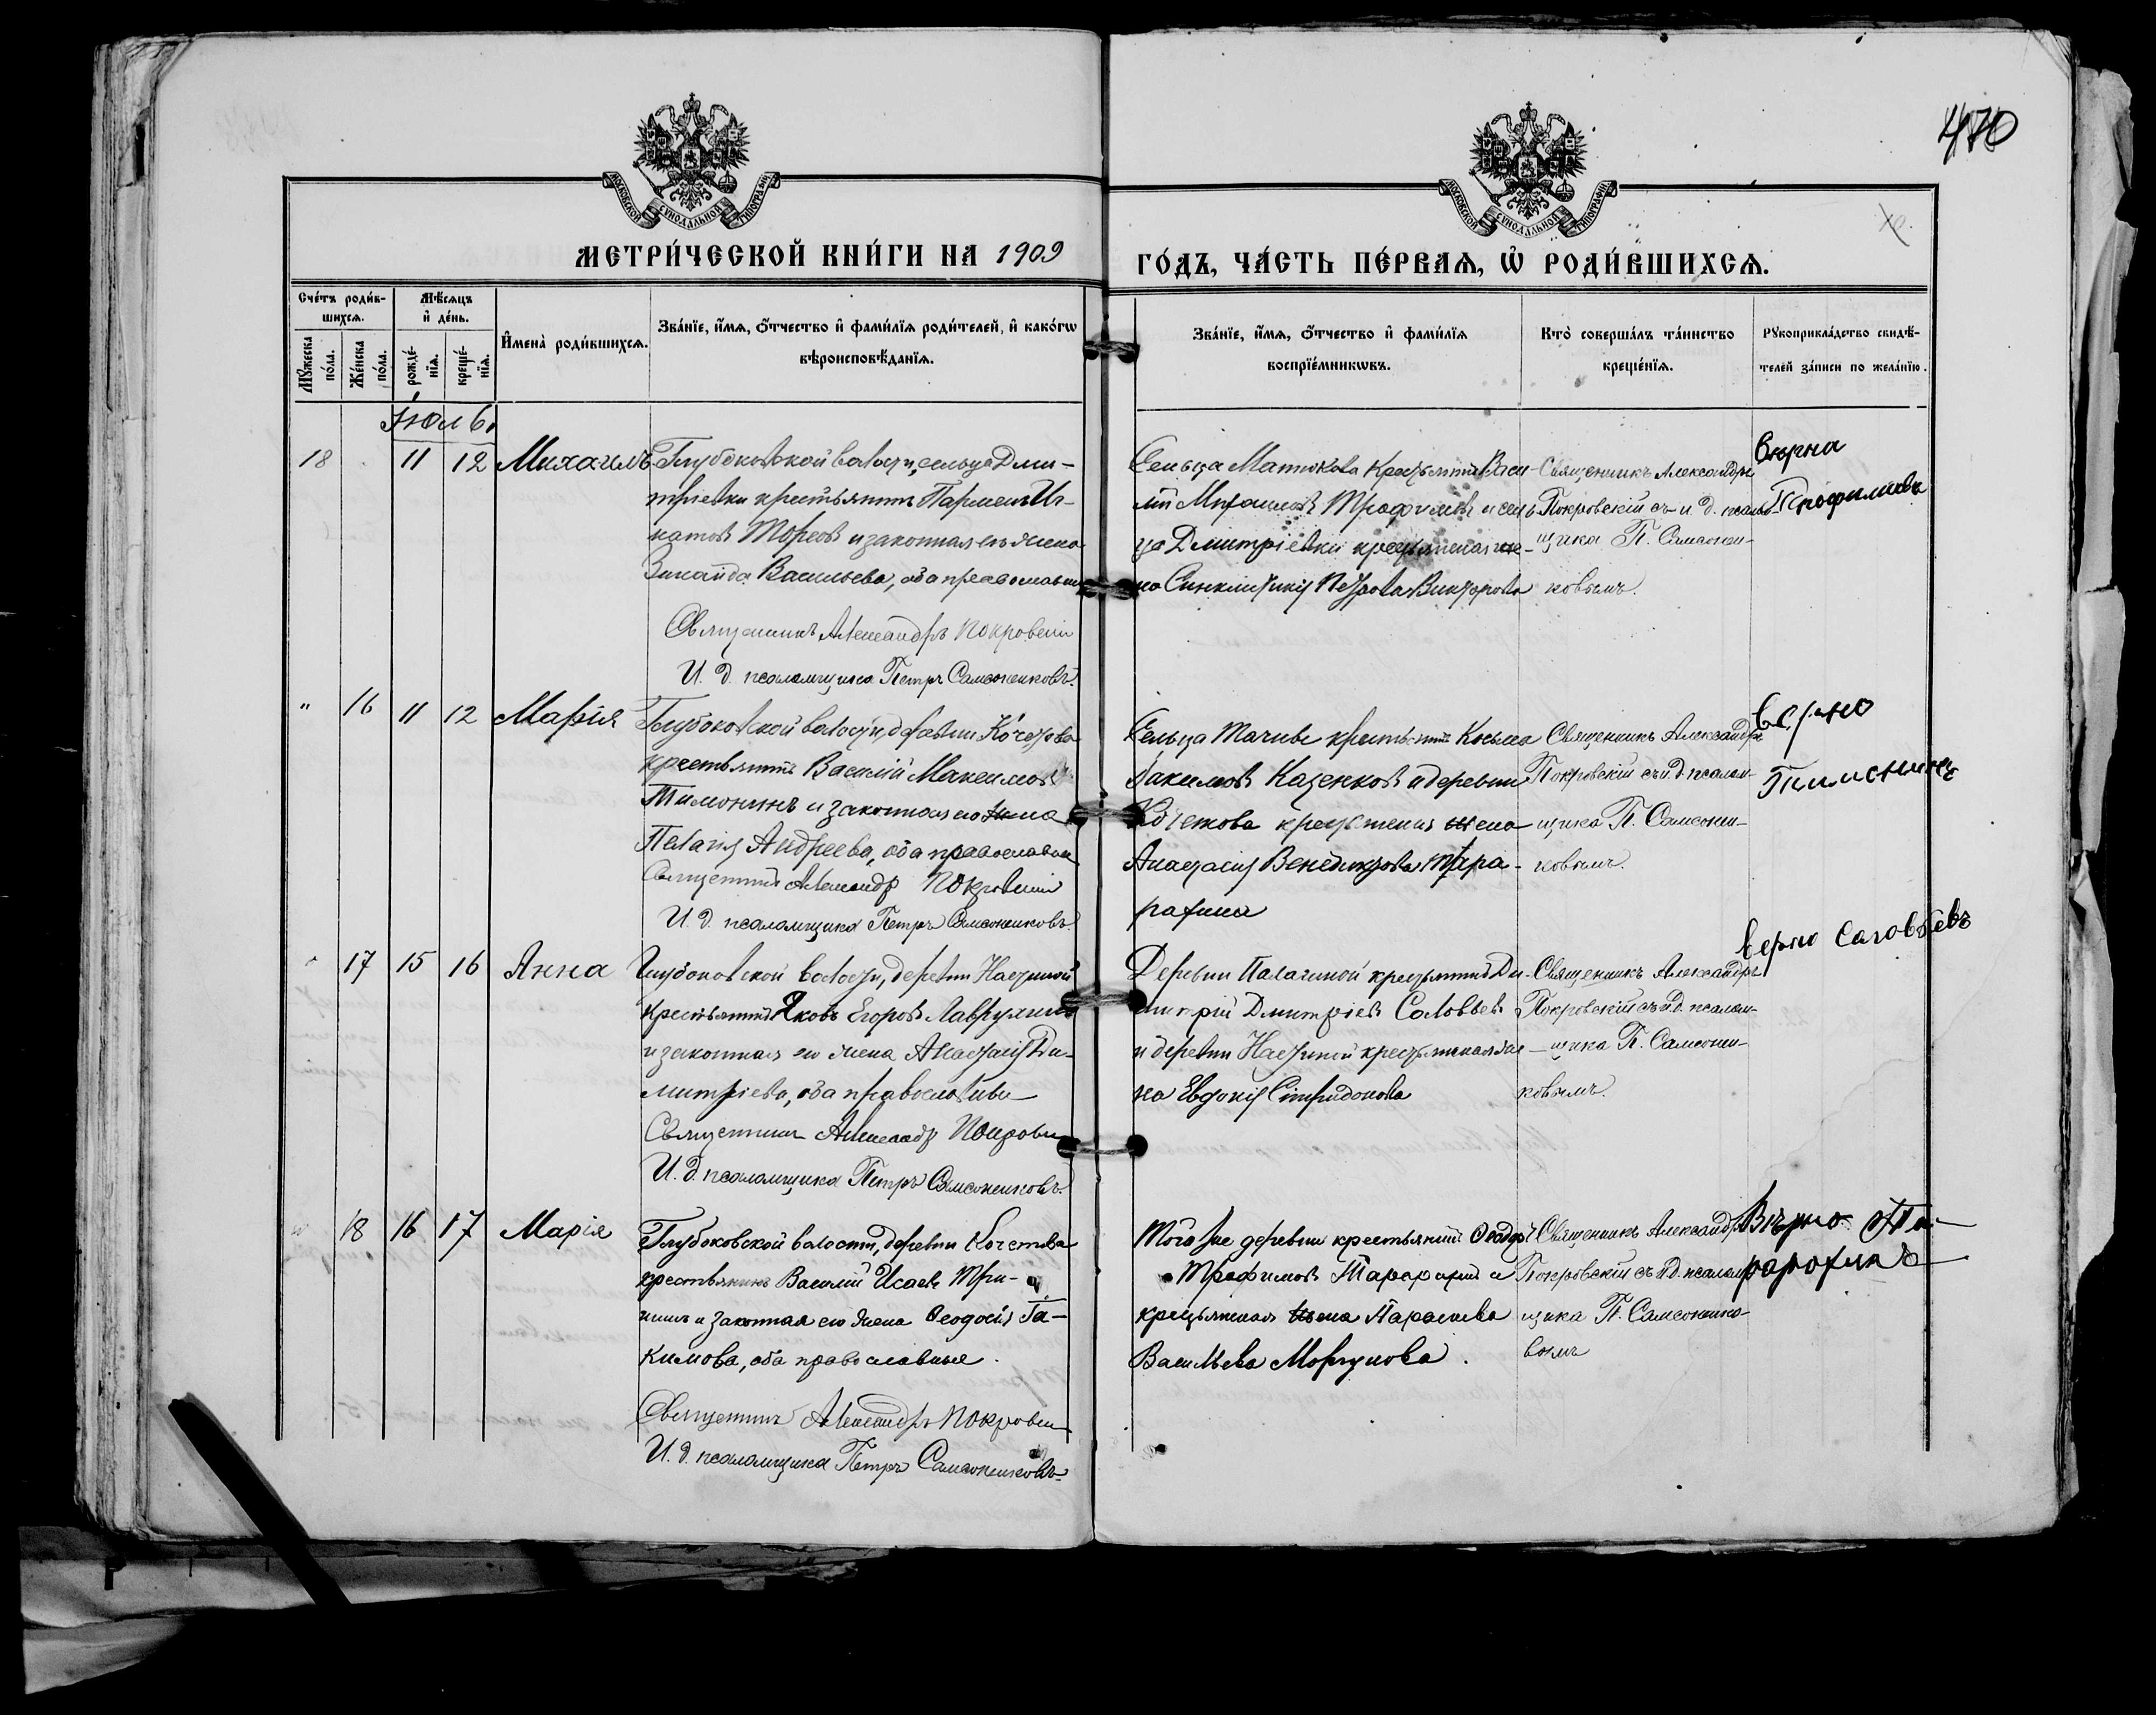 470
МЕТРИ́ЧЕСКОЙ КНИ́ГИ НА 1909
ГО́ДЪ, ЧА́СТЬ ПЕ́РВАЯ, Ѡ РОДИ́ВШИХСЯ.
Сче́тъ роди́в-
шихся.
Мѣ́сяцъ
и҆ де́нь.
Мꙋ́жеска
по́ла.
Же́нска
по́ла.
рожде́-
нїѧ.
креще́-
нїѧ.
И҆мена̀ роди́вшихсѧ.
Зва́нїе, и҆́мѧ, ѻ҆́тчество и҆ фами́лїѧ роди́телей, и҆ како́гѡ
вѣроисповѣ́данїѧ.
Зва́нїе, и҆́мѧ, ѻ҆́тчество и҆ фами́лїѧ
воспрїе́мникѡвъ.
Кто̀ соверша́лъ та́инство
креще́нїѧ.
Рꙋкоприкла́дство свидѣ́-
телей за́писи по жела́нїю.
Іюль.
18 11 12 Михаилъ
Глубоковской волости, сельца Дми-
тріевки крестьянинъ Парменъ Иг-
натовъ и законная его жена
Зинаида Васильева, оба православные
Священникъ Александръ Покровскій
И. д. псаломщика Петръ Самсоненковъ.
Сельца Матюкова крестьянинъ Васи-
лій Трофимовъ и сель-
ца Дмитріевки крестьянская же-
на Синклитикія Петрова Викторова
Священникъ Александръ
Покровскій съ и. д. псалом-
щика П. Самсонен-
ковымъ.
Верна
Трофимовъ
" 16 11 12 Марія
Глубоковской волости, деревни Кочетова
крестьянинъ Василій Максимовъ
Тимонинъ и законная его жена
Пелагія Андреева, оба православные
Священникъ Александръ Покровскій
И. д. псаломщика Петръ Самсоненковъ.
Сельца крестьянинъ Косьма
Іакимовъ Казенковъ и деревни
Кочетова крестьянская жена
Анастасія Венедиктова Тара-
рахина
Священникъ Александръ
Покровскій съ и. д. псалом-
щика П. Самсонен-
ковымъ.
верно
17 15 16 Анна
Глубоковской волости, деревни
крестьянинъ Яковъ Егоровъ Лаврухинъ
и законная его жена Анастасія Ди-
митріева, оба православные
Священникъ Александръ Покровскій
И. д. псаломщика Петръ Самсоненковъ.
Деревни Палагиной крестьянинъ Ди-
митрій Дмитріевъ Соловьевъ
и деревни крестьянская же-
на Евдокія Спиридонова
Священникъ Александръ
Покровскій съ и. д. псалом-
щика П. Самсонен-
ковымъ.
верно Саловьевъ
18 16 17 Марія
Глубоковской волости, деревни Кочетова
крестьянинъ Василій Исаевъ Три-
и законная его жена Ѳеодосія Іа-
кимова, оба православные.
Священникъ Александръ Покровскій
И. д. псаломщика Петръ Самсоненковъ.
Той же деревни крестьянинъ Ѳеодоръ
Трофимовъ Тарарахинъ и
крестьянская жена Параскева
Васильева Моргунова.
Священникъ Александръ
Покровскій съ и. д. псалом-
щика П. Самсоненко-
вымъ
Вѣрно Та-
рарахинъ